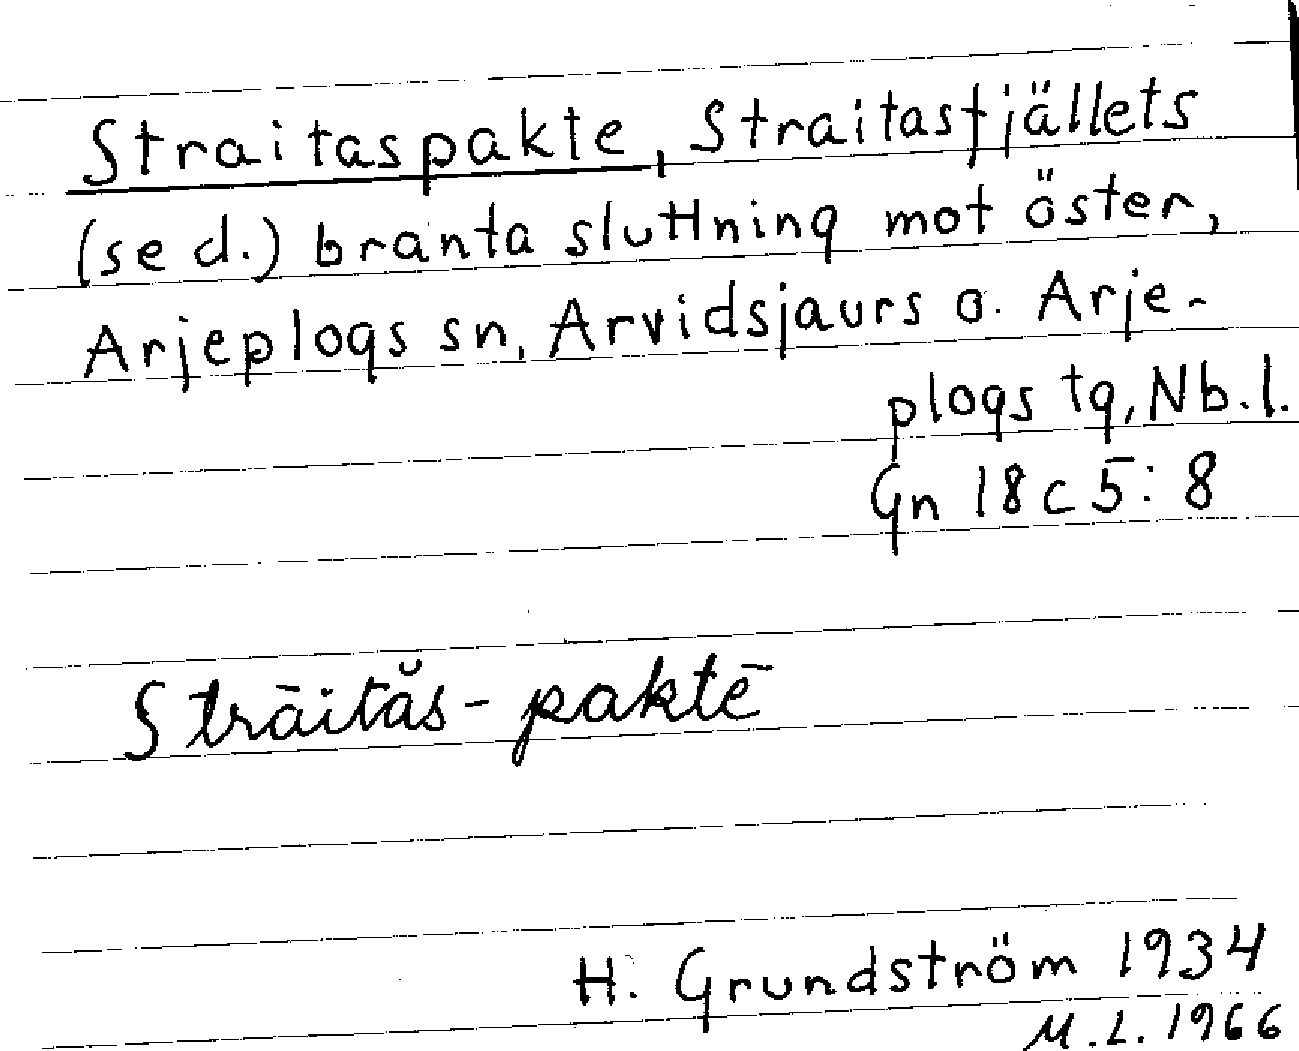 Straitaspakte, Straitasfjällets
(se d.) branta sluttning mot öster,
Arjeplogs sn, Arvidsjaurs o. Arje-
plogs tg, Nb.l.
Gn 18c 5: 8
Strāităs-paktē
H. Grundström 1934
M.L. 1966